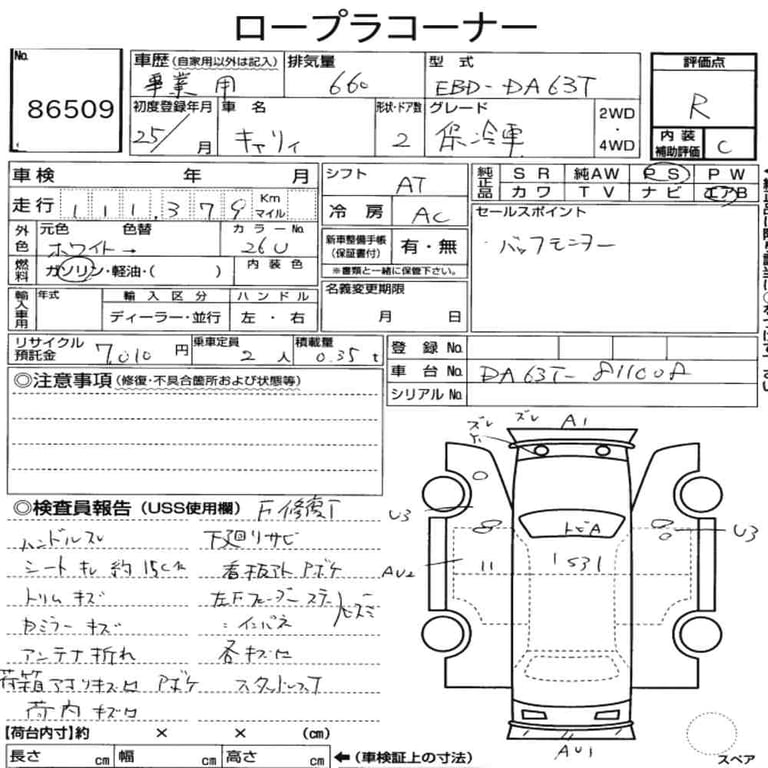 ロープラコーナー
No.
86509
車歴(自家用以外は記入)
事業用
排気量
660
型式
EBD-DA63T
評価点
R
初度登録年月
25/月
車名
キャリィ
形状・ドア数
2
グレード
保冷車
2WD
・
4WD
内装
補助評価
C
車検 年 月
走行 111,379 Km マイル
シフト
AT
冷房
AC
純正品
SR 純AW PS PW
カワ TV ナビ エアB
セールスポイント
・バックモニター
外色
元色 色替 カラーNo.
ホワイト→ 26U
燃料
ガソリン・軽油・( )
内装色
新車整備手帳
(保証書付)
有・無
※書類と一緒に保管下さい。
輸入車用
年式
輸入区分
ハンドル
ディーラー・並行
左・右
名義変更期限
月 日
リサイクル
預託金
7,010円
乗車定員
2人
積載量
0.35t
登録No.
車台No. DA63T-811008
シリアルNo.
◎注意事項(修復・不具合箇所および状態等)
◎検査員報告(USS使用欄)
ハンドルスレ
下廻りサビ
シートキレ約15cm
看板アト アボケ
トリムキズ
左Fフェンダーステー
Bミラーキズ
:インパネ
ビスミ
アンテナ折れ
各キズ凹
荷箱アオリキズ凹 アボケ
スタッドレスT
荷内キズ凹
ズレ
ズレ
A1
U3
U3
トビA
AU2
1531
AU1
スペア
【荷台内寸】約 × × (cm)
長さ cm 幅 cm 高さ cm ←(車検証上の寸法)